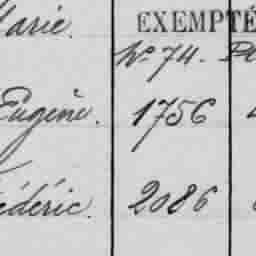 Marie. EXEMPTÉ
No 74.
Eugène. 1756
Frédéric. 2086